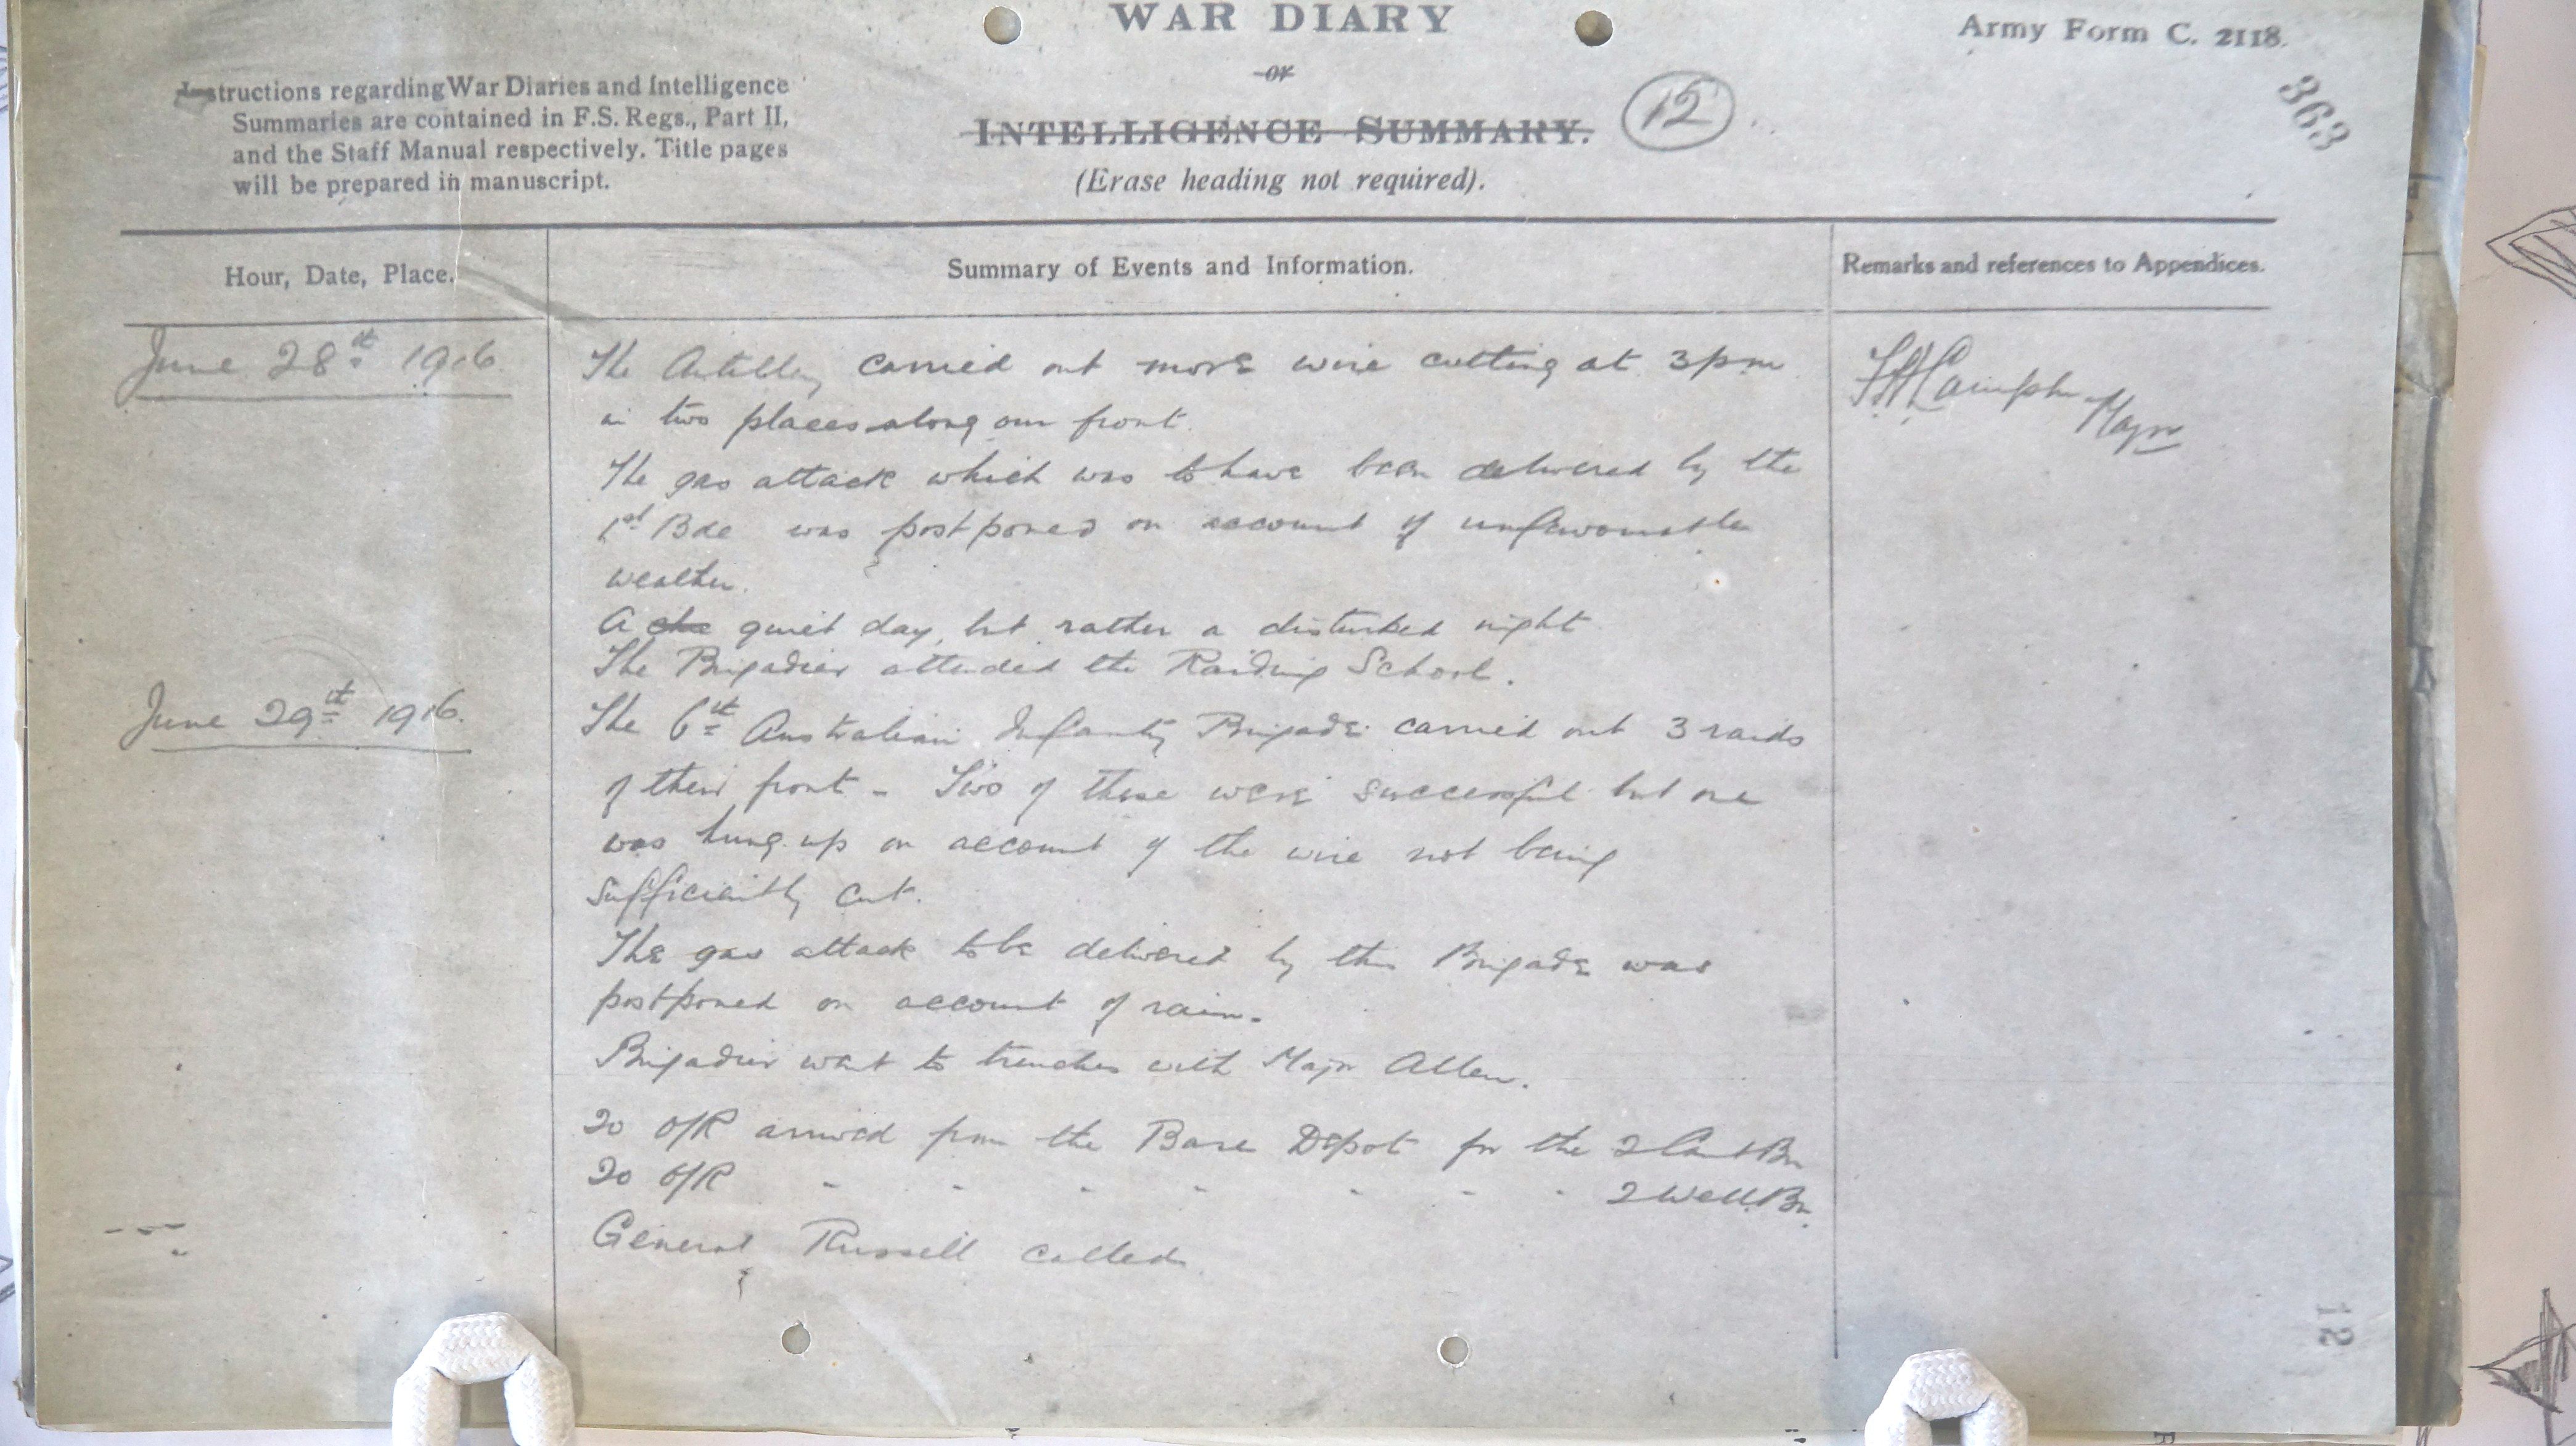 WAR DIARY
Army Form C. 2118.
or
363
Instructions regarding War Diaries and Intelligence
Summaries are contained in F.S. Regs., Part II,
and the Staff Manual respectively. Title pages
will be prepared in manuscript.
INTELLIGENCE SUMMARY.
12
(Erase heading not required).
Hour, Date, Place.
Summary of Events and Information.
Remarks and references to Appendices.
June 28th 1916.
The Artillery carried out more wire cutting at 3pm
in two places along our front.
The gas attack which was to have been delivered by the
1st Bde was postponed on account of unfavourable
weather.
A quiet day, but rather a disturbed night
The Brigadier attended the Raiding School.
Major
June 29th 1916.
The 6th Australian Infantry Brigade carried out 3 raids
of their front - Two of these were successful but one
was hung up on account of the wire not being
sufficiently cut.
The gas attack to be delivered by this Brigade was
postponed on account of rain.
Brigadier went to trenches with Major Allen.
20 O/R arrived from the Base Depot for the 2 Cant Bn
20 O/R " " " " " " " 2 Well. Bn.
General Russell called
12